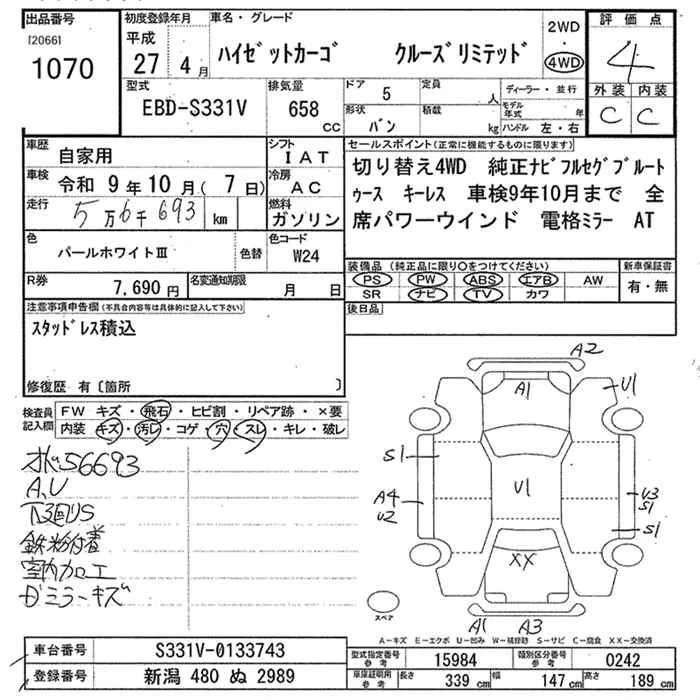 出品番号
[2066]
1070
初度登録年月
平成
27 4 月
車名・グレード
ハイゼットカーゴ クルーズリミテッド
2WD
・
4WD
評価点
4
外装 内装
C C
型式
EBD-S331V
排気量
658
cc
ドア
5
定員
人
形状
バン
積載
kg
ディーラー・並行
モデル年式 年
ハンドル 左・右
車歴
自家用
シフト
IAT
車検
令和 9年 10月( 7日)
冷房
AC
走行
5万6千693
km
燃料
ガソリン
色
パールホワイトⅢ
色替
色コード
W24
R券
7,690 円
名変通知期限
月 日
セールスポイント(正常に機能するものに限ります)
切り替え4WD 純正ナビフルセグブルート
ゥース キーレス 車検9年10月まで 全
席パワーウインド 電格ミラー AT
装備品 (純正品に限り○をつけてください)
PS PW ABS エアB AW
SR ナビ TV カワ
新車保証書
有・無
後日品
注意事項申告欄(不具合内容等は具体的に記入して下さい)
スタッドレス積込
修復歴 有〔箇所 〕
検査員
記入欄
FW キズ・飛石・ヒビ割・リペア跡・×要
内装 キズ・汚レ・コゲ・穴・スレ・キレ・破レ
56693
A,U
下回りS
鉄粉付着
室内加工
ミラーキズ
A2
A1
U1
S1
U1
A4
U2
U3
S1
S1
XX
A1 A3
スペア
A-キズ E-エクボ U-凹み W-補修跡 S-サビ C-腐食 XX-交換済
車台番号
S331V-0133743
登録番号
新潟 480 ぬ 2989
型式指定番号
参考
15984
類別区分番号
参考
0242
車庫証明用
参考
長さ
339 cm
幅
147 cm
高さ
189 cm